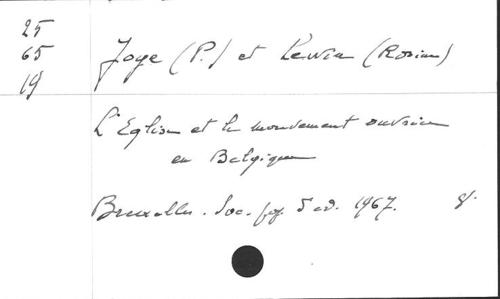 25
65
19
Joye (P.) et Lewin (Rosine)
L'Eglise et le mouvement ouvrier
en Belgique
Bruxelles. Soc. pop. d'éd. 1967. 8.